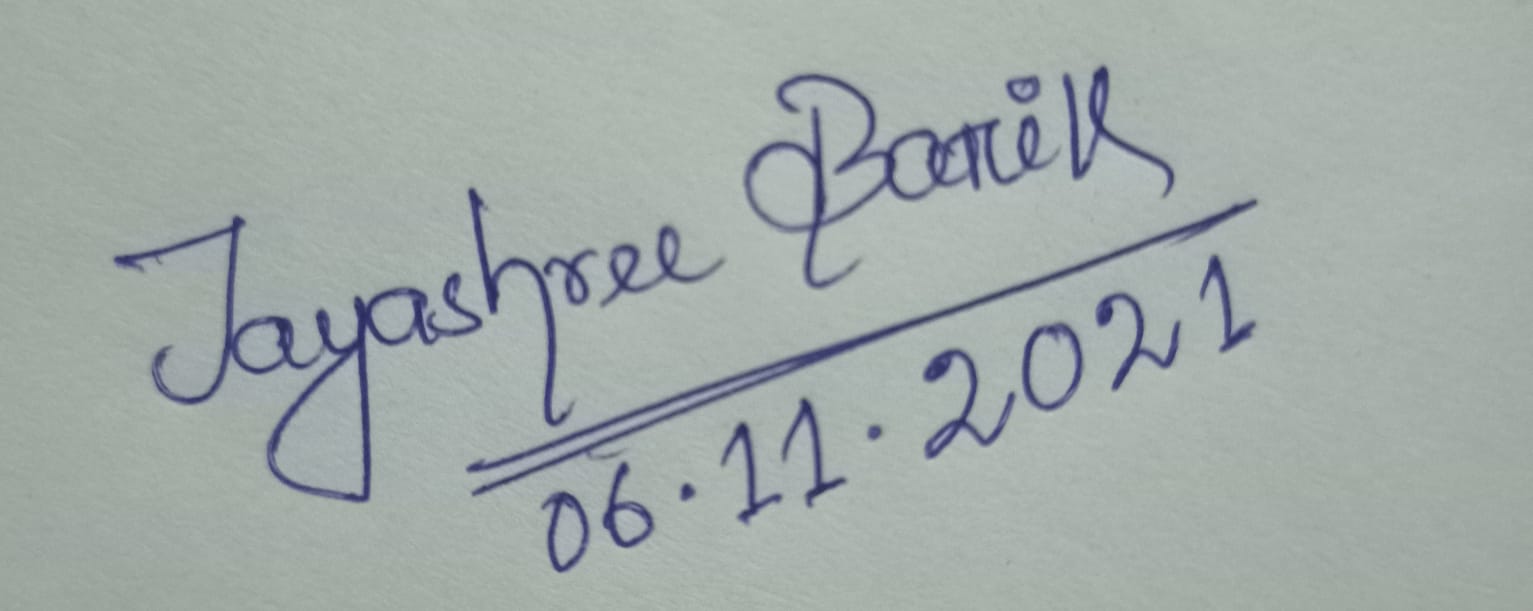 Jayashree Barik
06.11.2021